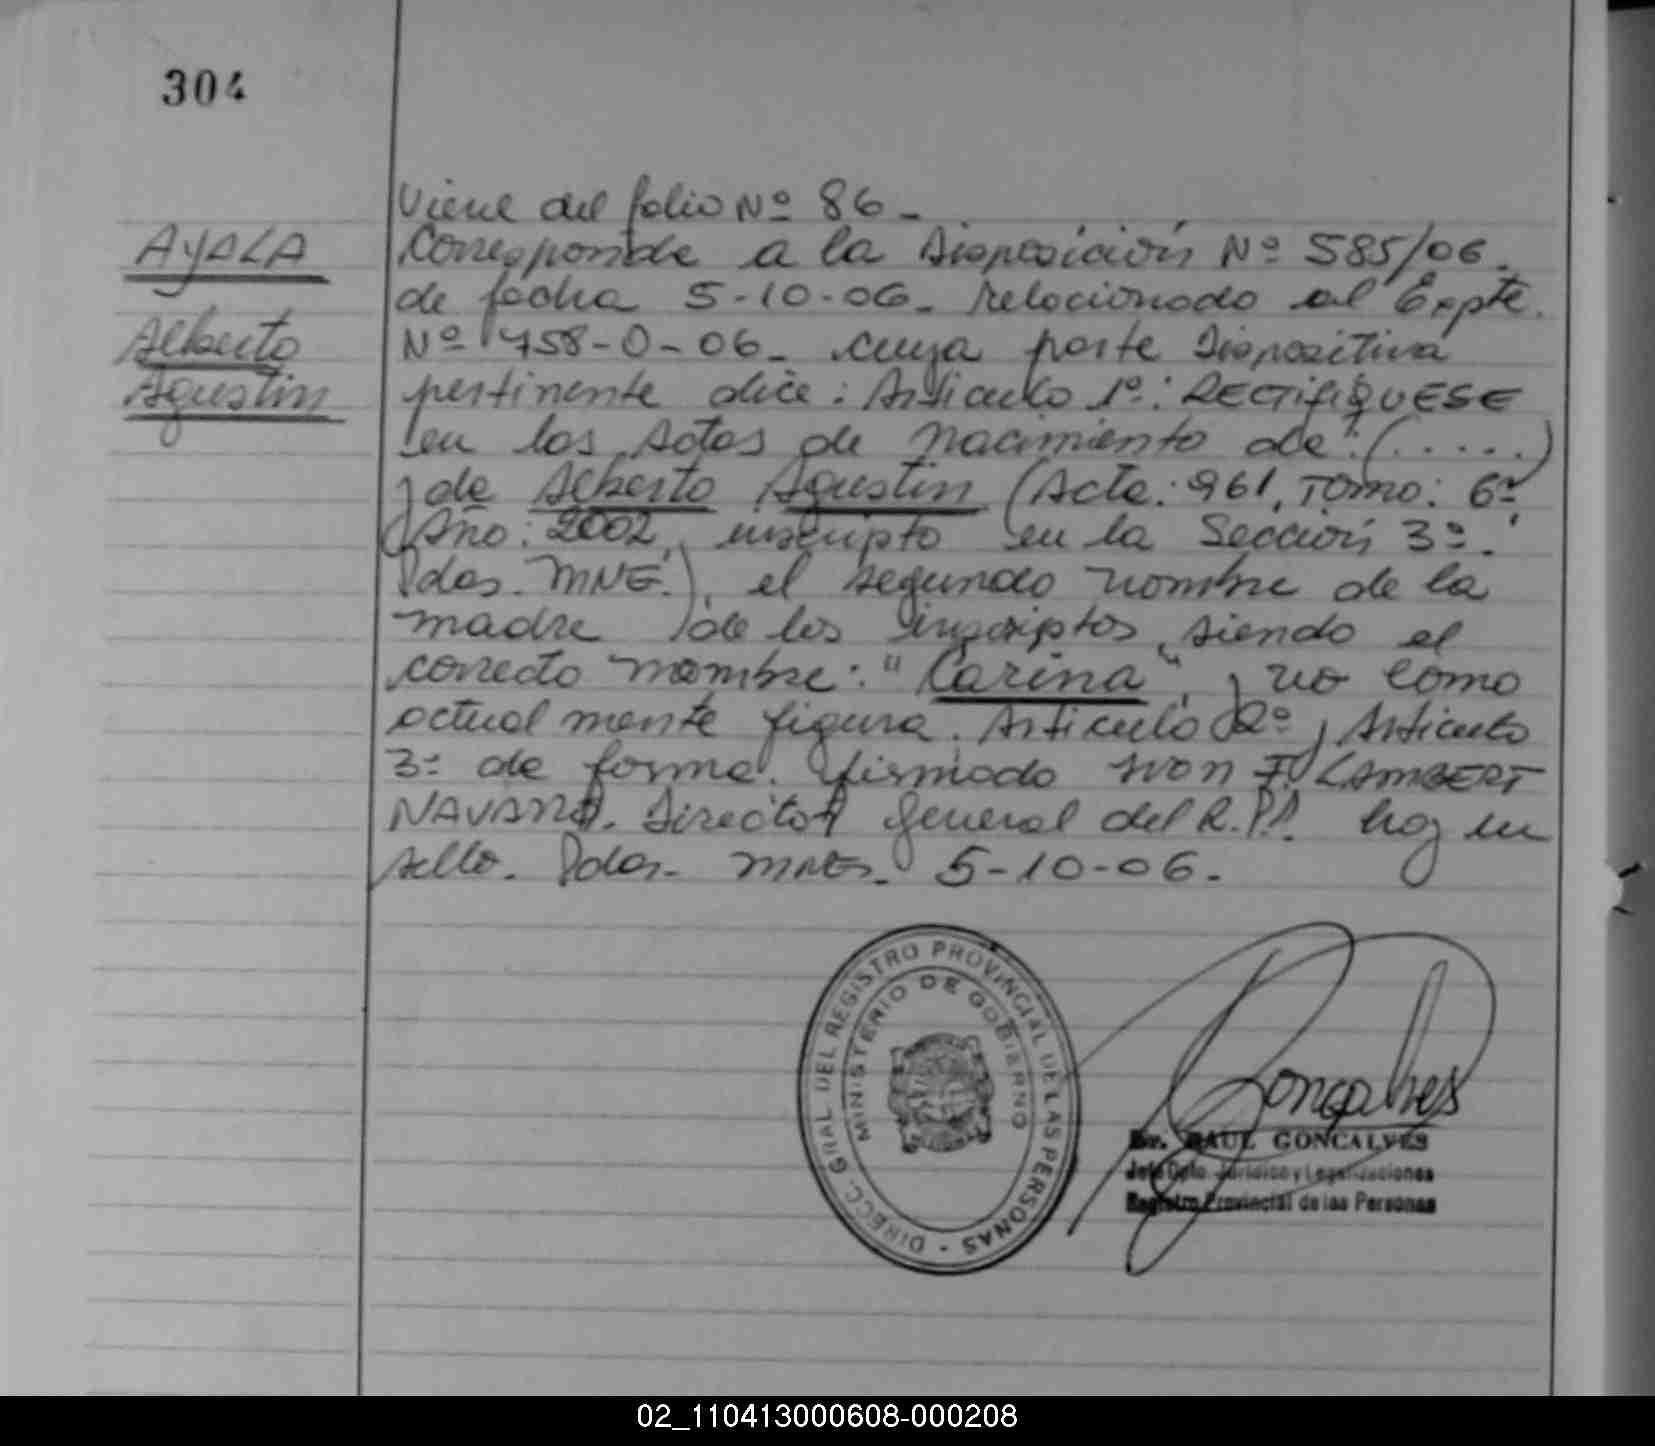 304
Viene del folio Nº 86-
AYALA
Corresponde a la Disposición Nº 585/06.
de fecha 5-10-06- relacionado al Expte.
Alberto
Nº 458-0-06- cuya parte Dispositiva
Agustin
pertinente dice: Articulo 1º: RECTIFIQUESE
en las Actas de nacimiento de: (.....)
y de Alberto Agustin (Acta: 961, Tomo: 6º,
Año: 2002, inscripto en la Sección 3º.
Pdas. MNES.), el segundo nombre de la
madre de los inscriptos, siendo el
correcto nombre: "Carina", y no como
actualmente figura. Articulo 2º y Articulo
3º de forma. firmado Ivon F. LAMBERT
NAVARRO. Director General del R.P.P. hay un
sello. Pdas. MNES. 5-10-06.
DIRECC. GRAL DEL REGISTRO PROVINCIAL DE LAS PERSONAS -
MINISTERIO DE GOBIERNO
Goncalves
Dr. RAUL GONCALVES
Jefe Dpto. Jurídico y Legalizaciones
Registro Provincial de las Personas
02_110413000608-000208